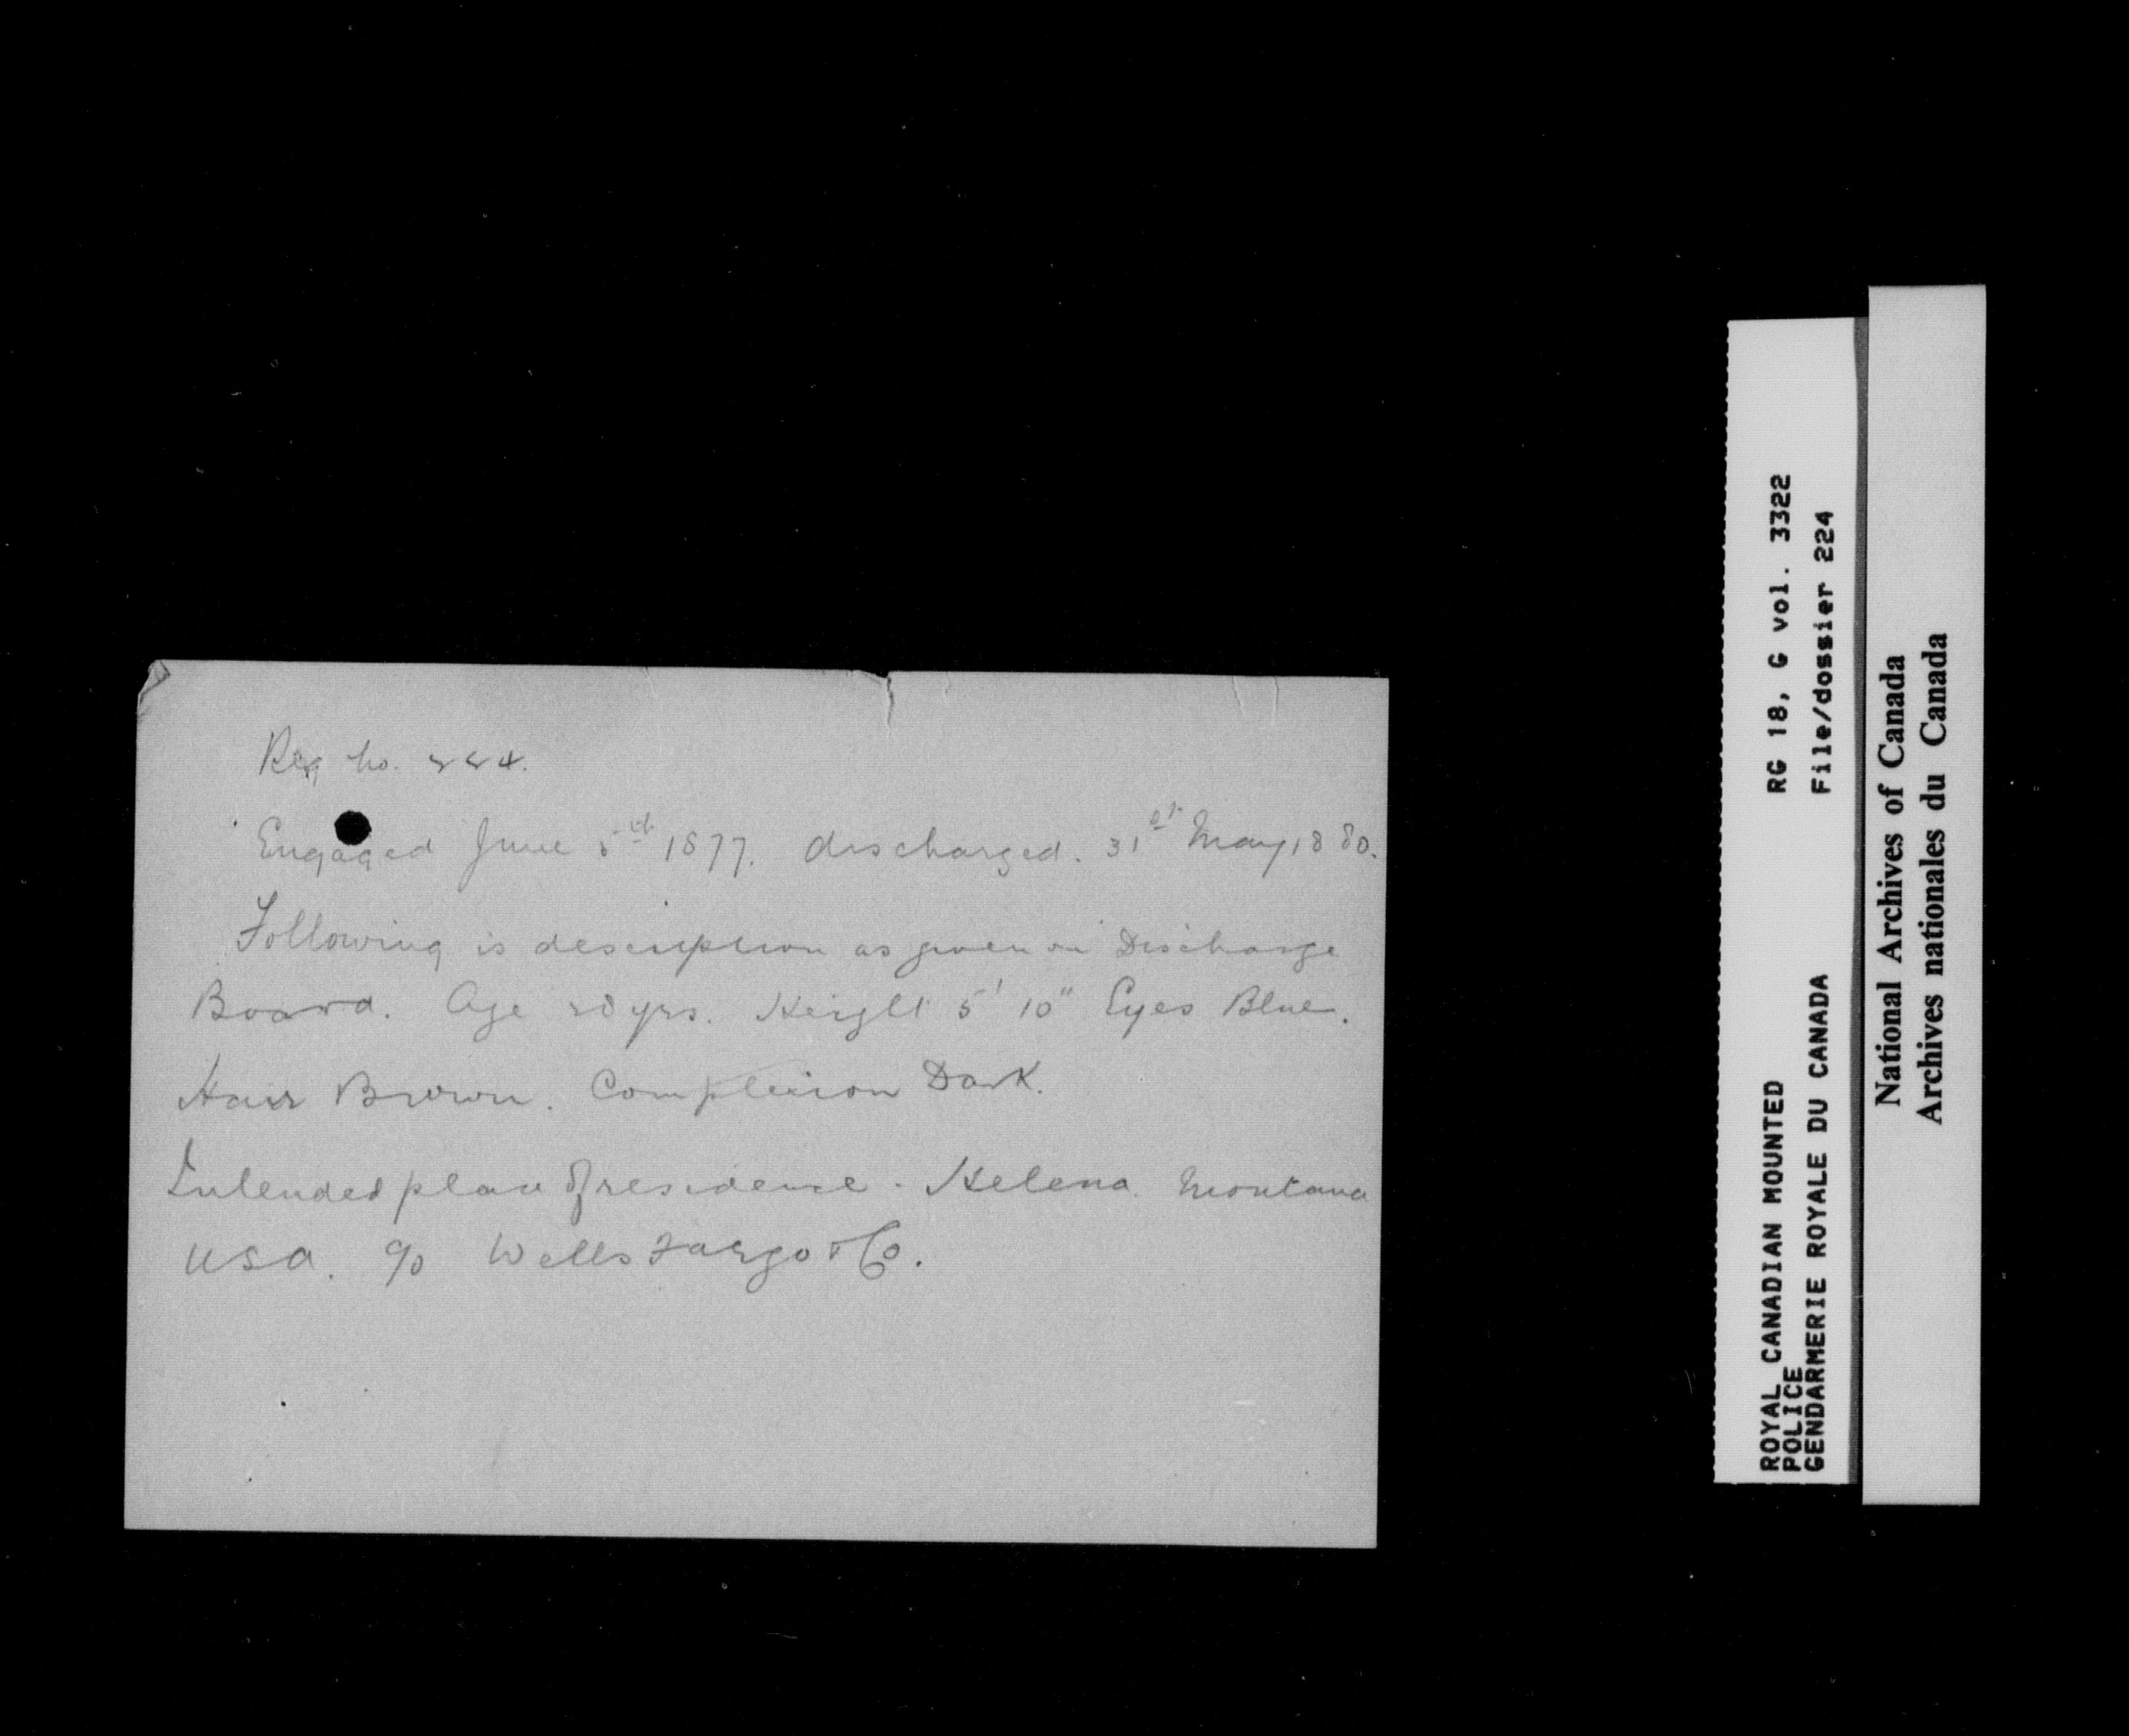 Reg no. 224.
Engaged June 5th 1877. discharged. 31st May 1880.
Following is description as given on Discharge
Board. Age 28 yrs. Height 5' 10" Eyes Blue.
Hair Brown. Complexion Dark.
Intended place of residence. Helena. Montana
USA. c/o Wells Fargo & Co.
ROYAL CANADIAN MOUNTED
POLICE
GENDARMERIE ROYALE DU CANADA
RG 18, G vol. 3322
File/dossier 224
National Archives of Canada
Archives nationales du Canada